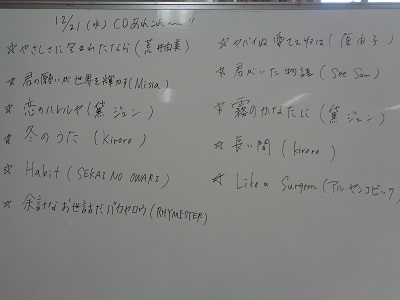 12/21(水) CDあれこれ〜!!
☆やさしさに包まれたなら(荒井由美)
☆君の願いが世界を輝かす(Misia)
☆恋のハレルヤ(黛ジュン)
☆冬のうた(Kiroro)
☆Habit(SEKAI NO OWARI)
☆余計なお世話だバカヤロウ(RHYMESTER)
☆ヤバイね愛てえ奴は(原由子)
☆君がいた物語(See Saw)
☆霧のかなたに(黛ジュン)
☆長い間(kiroro)
☆Like a Surgeon(アルヤンコビック)